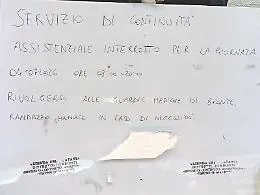 SERVIZIO DI CONTINUITÀ
ASSISTENZIALE INTERROTTO PER LA GIORNATA
ORE
RIVOLGERSI ALLE GUARDIE MEDICHE DI BRONTE,
RANDAZZO, MANIACE IN CASO DI NECESSITÀ